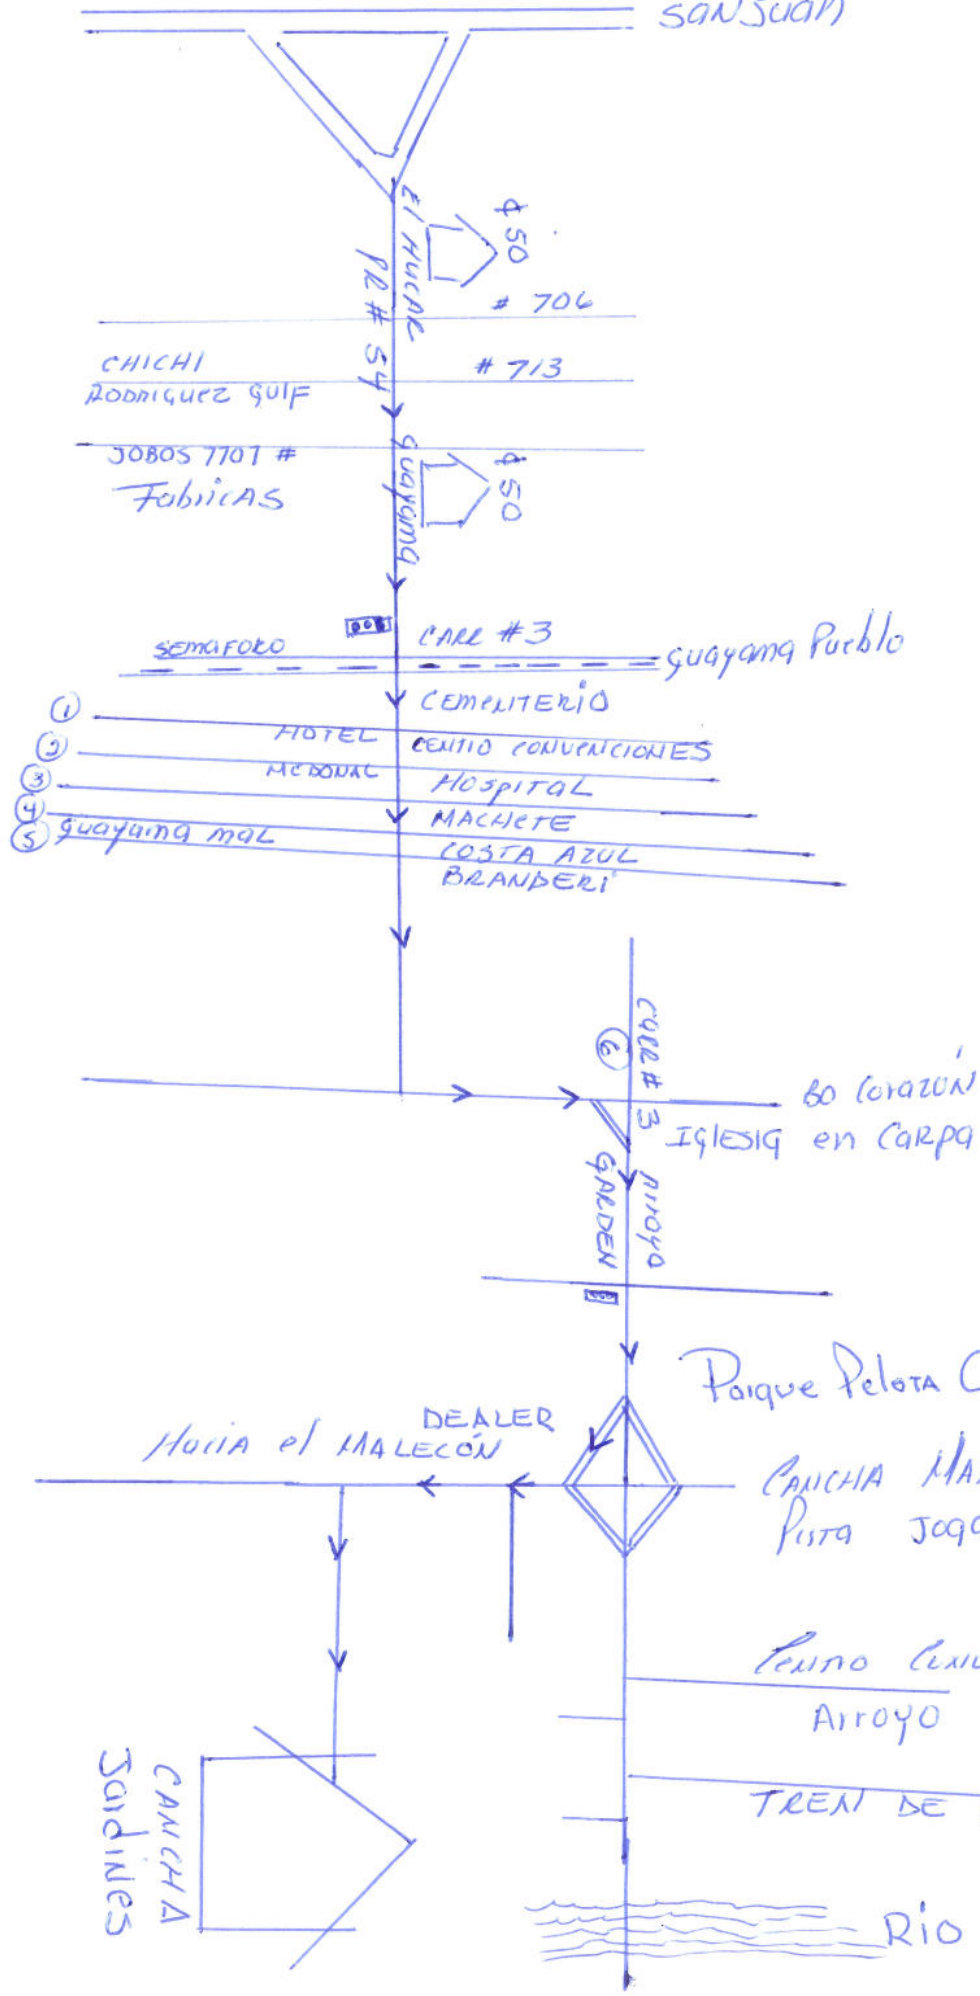 SAN JUAN
El HUCAR
PR # 54
¢ 50
# 706
CHICHI
RODRIGUEZ GULF
# 713
JOBOS 7707 #
Fabricas
guayama
¢ 50
SEMAFORO
CARR #3
guayama Pueblo
① CEMENTERIO
② HOTEL CENTRO CONVENCIONES
③ MCDONAL HOSPITAL
④ MACHETE
⑤ guayama mal COSTA AZUL
BRANDERI
⑥ CARR # 3
BO Corazón
IGLESIA en CARPA
GARDEN
Arroyo
Parque Pelota
DEALER
Hacia el MALECÓN
CANCHA
Pista
Centro
Arroyo
TREN DE
CANCHA
Jardines
Rio